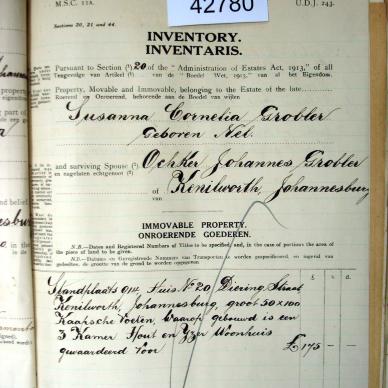 M.S.C. 11A.
42780
U.D.J. 243.
Sections 20, 21 and 44.
INVENTORY.
INVENTARIS.
Pursuant to Section (¹) 20 of the "Administration of Estates Act, 1913," of all
Tengevolge van Artikel (¹) van de "Boedel Wet, 1913," van al het Eigendom,
Property, Movable and Immovable, belonging to the Estate of the late
Roerend en Onroerend, behorende aan de Boedel van wijlen
Susanna Cornelia Grobler
Geboren Nel.
and surviving Spouse (²) Ochker Johannes Grobler
en nagelaten echtgenoot (²)
of Kenilworth, Johannesburg
van
IMMOVABLE PROPERTY.
ONROERENDE GOEDEREN.
N.B.—Dates and Registered Numbers of Titles to be specified; and, in case of portions the area of the piece of land to be given.
N.B.—Datums en Geregistreerde Nummers van Transporten te worden gespecificeerd, en ingeval van gedeelten, de grootte van de grond te worden opgegeven.
£ s. d.
Standplaats 914, Huis No 20 Diering Straat
Kenilworth, Johannesburg, groot 50 x 100
Kaapsche Voeten. Waarop gebouwd is een
3 Kamer Hout en Yzer Woonhuis
gewaardeerd voor £ 175 –